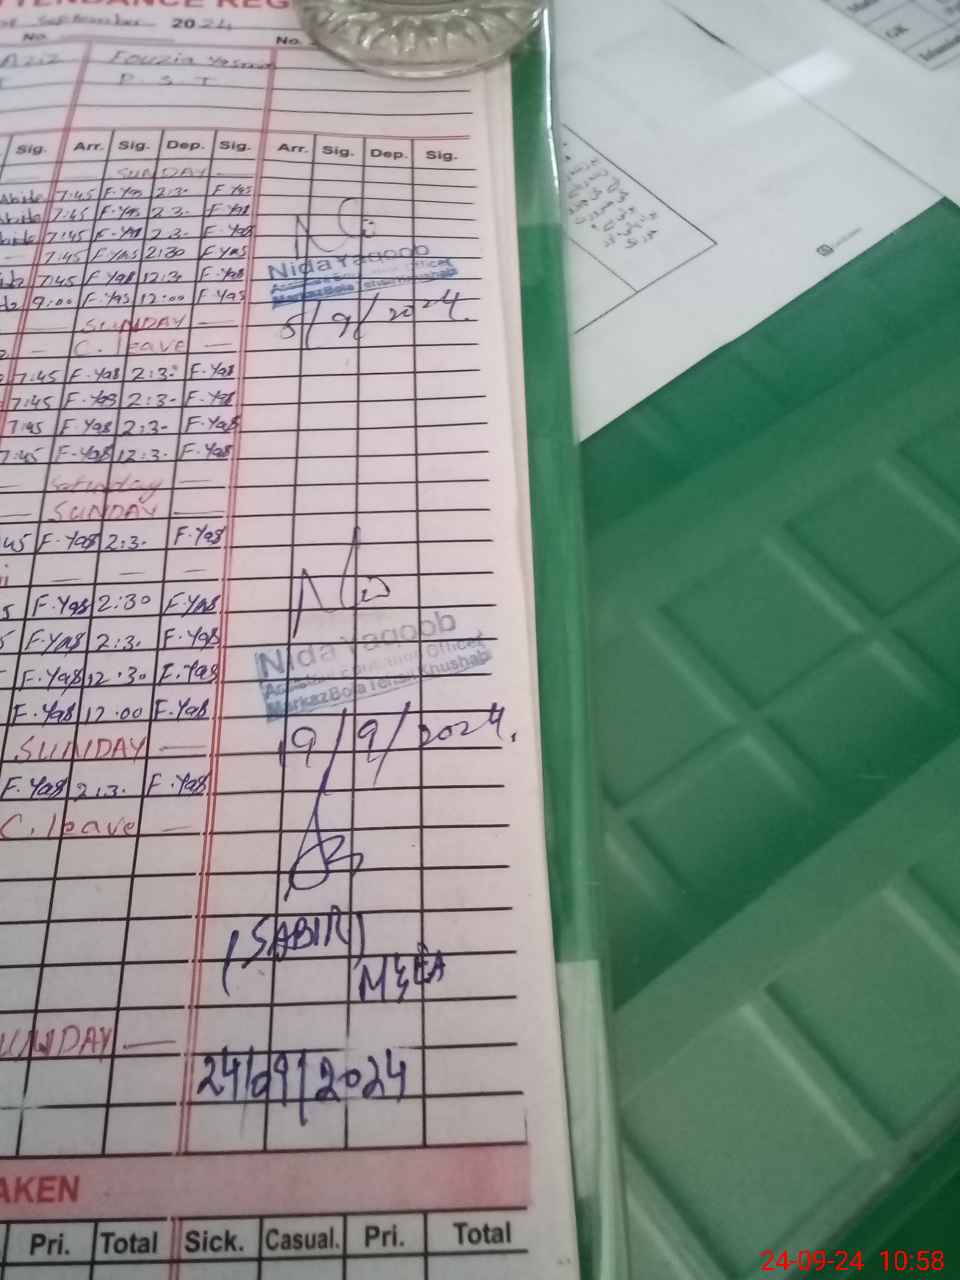 TTENDANCE REG
September 2024
No. No.
Aziz Fouzia Yasmin
P. S. T
Sig. Arr. Sig. Dep. Sig. Arr. Sig. Dep. Sig.
SUNDAY
Abida 7:45 F-Yas 2:3- F-Yas
Abida 7:45 F-Yas 2:3- F-Yas
abida 7:45 F-Yas 2:3- F-Yas
7:45 F-Yas 2:30 F-Yas
7:45 F-Yas 12:3- F-Yas
9:00 F-Yas 12:00 F-Yas
Nida Yaqoob
Assistant Education Officer
Markaz Bola Tehsil Khushab
5/9/2024.
SUNDAY
C. leave
7:45 F-Yas 2:3- F-Yas
7:45 F-Yas 2:3- F-Yas
7:45 F-Yas 2:3- F-Yas
7:45 F-Yas 12:3- F-Yas
Saturday
SUNDAY
45 F-Yas 2:3- F-Yas
5 F-Yas 2:30 F-Yas
5 F-Yas 2:3- F-Yas
F-Yas 12:30 F-Yas
F-Yas 12:00 F-Yas
Nida Yaqoob
Assistant Education Officer
Markaz Bola Tehsil Khushab
19/9/2024.
SUNDAY
F-Yas 2:3- F-Yas
C. leave
(SABIR)
M&EA
UNDAY
24/09/2024
AKEN
Pri. Total Sick. Casual. Pri. Total
24-09-24 10:58